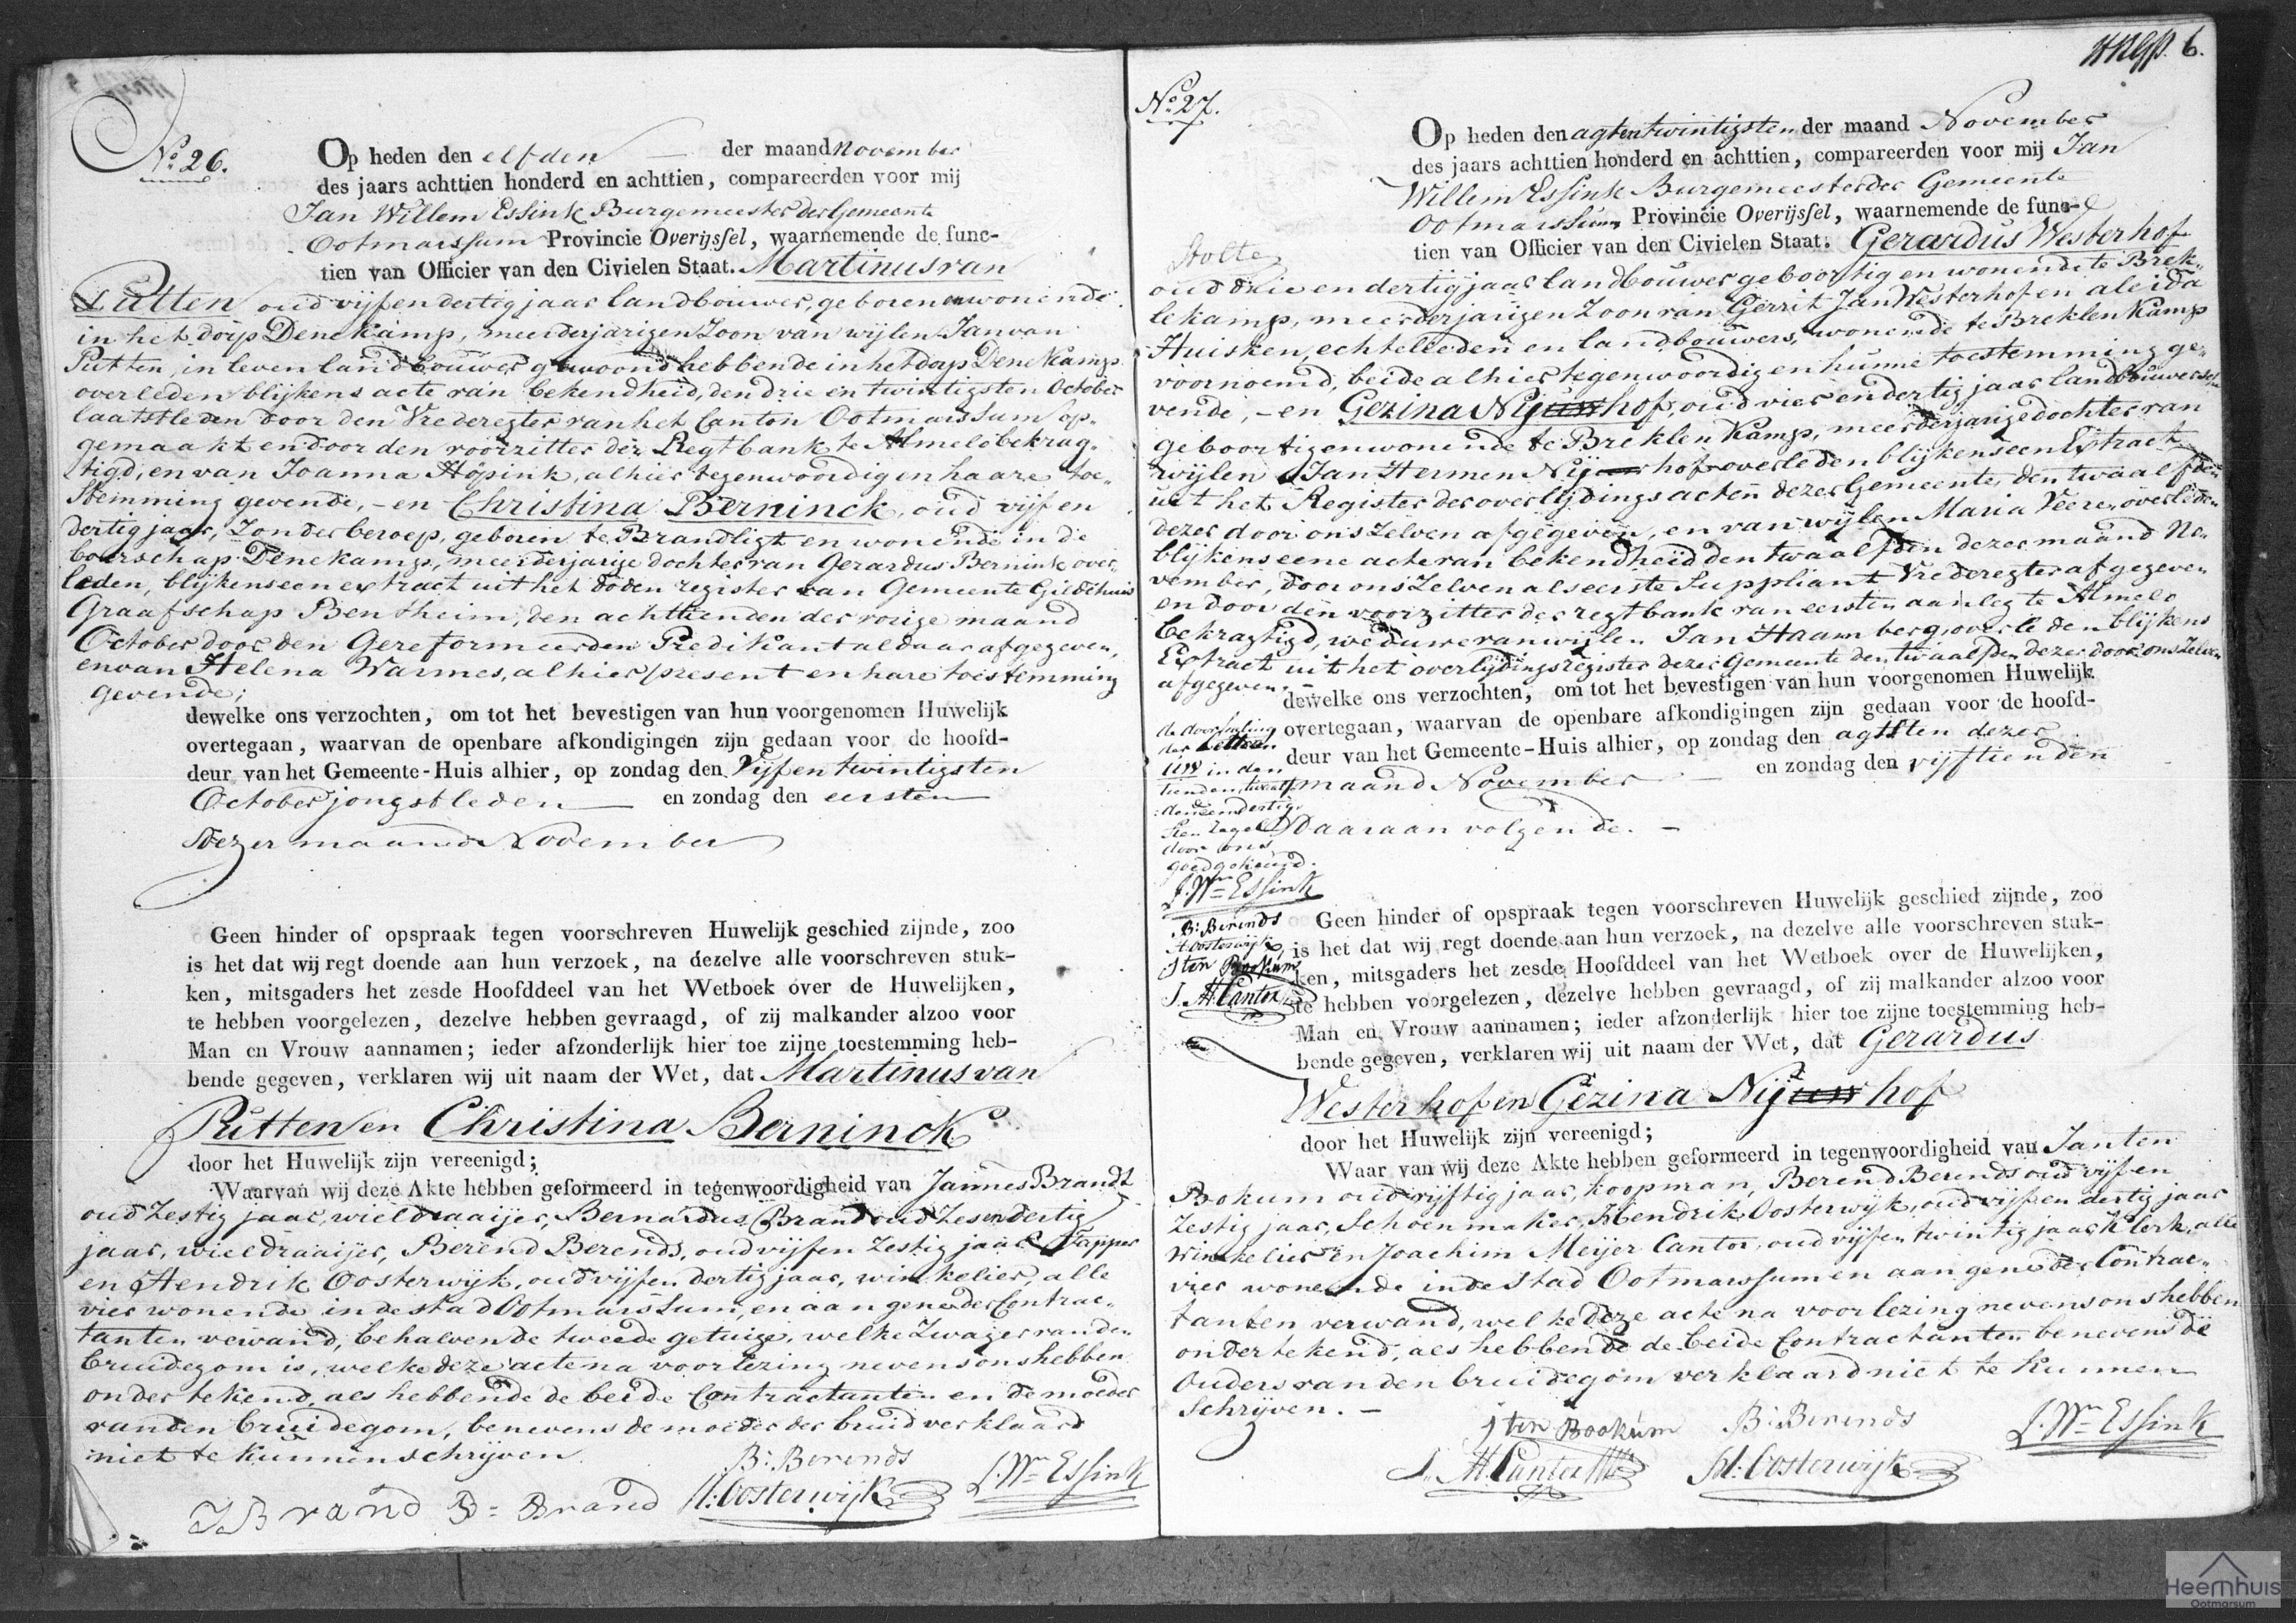 No. 26.
Op heden den elfden der maand November
des jaars achttien honderd en achttien, compareerden voor mij
Jan Willem Essink Burgemeester der Gemeente
Ootmarssum Provincie Overijssel, waarnemende de func-
tien van Officier van den Civielen Staat. Martinus van
Putten oud vijf en dertig jaar landbouwer, geboren en wonende
in het dorp Denekamp, meerderjarigen Zoon van wijlen Jan van
Putten, in leven landbouwer gewoond hebbende in het dorp Denekamp
overleden blijkens acte van bekendheid, den drie en twintigsten October
laatstleden door den Vrederegter van het Canton Ootmarssum op-
gemaakt en door den voorzitter der Regtbank te Almelo bekrag-
tigd, en van Joanna Höpink, alhier tegenwoordig en haare toe-
stemming gevende, - en Christina Berninck, oud vijf en
dertig jaar, Zonder beroep, geboren te Brandligt en wonende in de
boerschap Denekamp, meerderjarige dochter van Gerardus Bernink over-
leden, blijkens een extract uit het doden register van Gemeente Gildehuis
Graafschap Bentheim, den achttienden der vorige maand
October door den Gereformeerden Predikant aldaar afgegeven,
en van Helena Warmes, alhier present en hare toestemming
gevende;
dewelke ons verzochten, om tot het bevestigen van hun voorgenomen Huwelijk
overtegaan, waarvan de openbare afkondigingen zijn gedaan voor de hoofd-
deur van het Gemeente-Huis alhier, op zondag den Vijf en twintigsten
October jongstleden en zondag den eersten
dezer maand November
Geen hinder of opspraak tegen voorschreven Huwelijk geschied zijnde, zoo
is het dat wij regt doende aan hun verzoek, na dezelve alle voorschreven stuk-
ken, mitsgaders het zesde Hoofddeel van het Wetboek over de Huwelijken,
te hebben voorgelezen, dezelve hebben gevraagd, of zij malkander alzoo voor
Man en Vrouw aannamen; ieder afzonderlijk hier toe zijne toestemming heb-
bende gegeven, verklaren wij uit naam der Wet, dat Martinus van
Putten en Christina Berninck
door het Huwelijk zijn vereenigd;
Waarvan wij deze Akte hebben geformeerd in tegenwoordigheid van Jannes Brandt
oud Zestig jaar, wieldraaijer, Bernardus Brand oud Zes en dertig
jaar, wieldraaijer, Berend Berends, oud vijf en Zestig jaar Tapper
en Hendrik Oosterwijk, oud vijf en dertig jaar, winkelier, alle
vier wonende in de stad Ootmarssum, en aan geen der Contrac-
tanten vewand, behalven de tweede getuige, welke Zwager van den
bruidegom is, welke deze acte na voorlezing nevens ons hebben
ondertekend, als hebbende de beide Contractanten en de moeder
van den bruidegom, benevens de moeder der bruid verklaard
niet te kunnen schrijven
B: Berends
J Brand B= Brand H: Oosterwijk J. Wm Essink
6.
No. 27.
Op heden den agt en twintigsten der maand November
des jaars achttien honderd en achttien, compareerden voor mij Jan
Willem Essink Burgemeester der Gemeente
Ootmarssum Provincie Overijssel, waarnemende de func-
tien van Officier van den Civielen Staat. Gerardus Westerhof
Stolte
oud drie en dertig jaar landbouwer geboortig en wonende te Brek-
lekamp, meerderjarigen Zoon van Gerrit Jan Westerhof en aleida
Huisken, echtelieden en landbouwers, wonende te Breklenkamp
voornoemd, beide alhier tegenwoordig en hunne toestemming ge-
vende, - en Gezina Nijuwhof, oud vier en dertig jaar landbouwersche
geboortig en wonende te Breklenkamp, meerderjarige dochter van
wijlen Jan Hermen Nijuwhof overleden blijkens een Extract
uit het Register der overlijdings acten dezer Gemeente, den twaalfden
dezer door ons Zelven afgegeven, en van wijlen Maria Veere overleden
blijkens eene acte van bekendheid den twaalfden dezer maand No-
vember, door ons Zelven als eerste Suppliant Vrederegter afgegeven
en door den voorzitter der regtbank van eersten aanleg te Almelo
bekragtigd, weduwe van wijlen Jan Haambergh, overleden blijkens
Extract uit het overlijdingsregister dezer Gemeente den twaalfden dezer door ons Zelven
afgegeven,
dewelke ons verzochten, om tot het bevestigen van hun voorgenomen Huwelijk
overtegaan, waarvan de openbare afkondigingen zijn gedaan voor de hoofd-
deur van het Gemeente-Huis alhier, op zondag den agtsten dezer
maand November en zondag den vijftienden
Daaraan volgende. -
de doorhaling
der letteren
uw in den
tienden, twaalf
den en dertig-
sten regel
door ons
goedgekeurd.
J. Wm Essink
B: Berends
H: Oosterwijk
J ten Bookum
J. M. Cantor
Geen hinder of opspraak tegen voorschreven Huwelijk geschied zijnde, zoo
is het dat wij regt doende aan hun verzoek, na dezelve alle voorschreven stuk-
ken, mitsgaders het zesde Hoofddeel van het Wetboek over de Huwelijken,
te hebben voorgelezen, dezelve hebben gevraagd, of zij malkander alzoo voor
Man en Vrouw aannamen; ieder afzonderlijk hier toe zijne toestemming heb-
bende gegeven, verklaren wij uit naam der Wet, dat Gerardus
Westerhof en Gezina Nijuwhof
door het Huwelijk zijn vereenigd;
Waar van wij deze Akte hebben geformeerd in tegenwoordigheid van Jan ten
Bokum oud vijftig jaar, koopman, Berend Berends oud vijf en
Zestig jaar, Schoenmaker, Hendrik Oosterwijk, oud vijf en dertig jaar
Winkelier en Joachim Meijer Cantor, oud vijf en twintig jaar Klerk, alle
vier wonende in de stad Ootmarssum en aan geen der Contrac-
tanten verwand, welke deze acte na voorlezing nevens ons hebben
ondertekend, als hebbende de beide Contractanten benevens de
Ouders van den bruidegom verklaard niet te kunnen
Schrijven. -
J ten Bookum B: Berends J. Wm Essink
J. M. Cantor H: Oosterwijk
Heemhuis
Ootmarsum